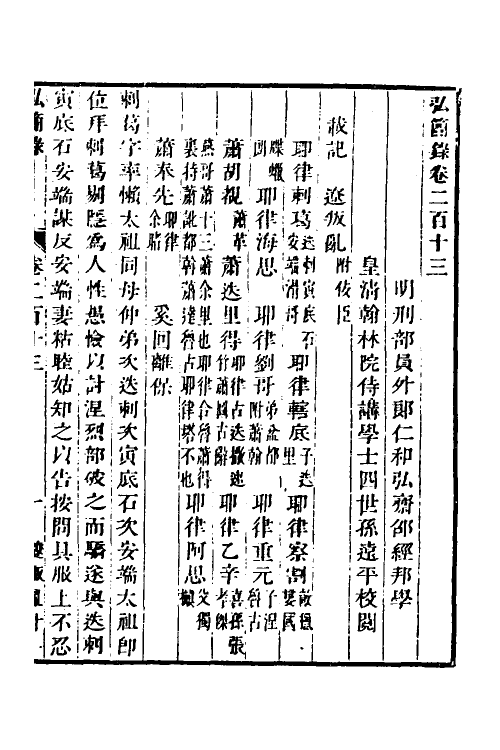 弘簡錄卷二百十三
明刑部員外郎仁和弘齋邵經邦學
皇淸翰林院侍講學士四世孫遠平校閱
載記 遼叛亂附佞臣
耶律剌葛迭剌寅底石安端滑哥 耶律轄底子迭里 耶律察割敵獵婁國
牒蠟朗 耶律海思 耶律劉哥弟盆都附蕭翰 耶律重元子涅魯古
蕭胡覩蕭革 蕭迭里得耶律古迭撒速竹蕭圖古辭 耶律乙辛孝傑喜孫張
燕哥蕭十三蕭余里也耶律合魯蕭得裏特蕭訛都斡蕭達魯古耶律塔不也 耶律阿思文獨
蕭奉先耶律余睹 奚回離保
剌葛字率懶太祖同母仲弟次迭剌次寅底石次安端太祖卽
位拜剌葛惕隱爲人性愚險以討涅烈部破之而驕遂與迭剌
寅底石安端謀反安端妻粘睦姑知之以告按問具服上不忍
弘簡錄 卷二百十三 一